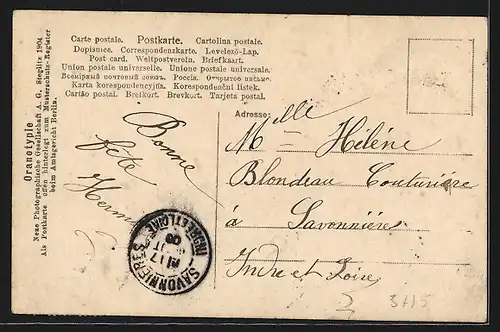 Oranotypie
Neue Photographische Gesellschaft A. G. Steglitz 1904
Als Postkarte offen hinterlegt zum Musterschutz-Register
beim Amtsgericht Berlin.
Carte postale. Postkarte. Cartolina postale.
Dopisnice. Correspondenzkarte. Levelező-Lap.
Post card. Weltpostverein. Briefkaart.
Union postale universelle. Unione postale universale.
Всемірный почтовый союзъ. Россія. Открытое письмо.
Karta korespondencyjna. Korespondenční lístek.
Cartão postal. Brefkort. Brevkort. Tarjeta postal.
Bonne
fête
Adresse:
Melle
Melle Hélène
Blondeau Couturière
à Savonnières
Indre et Loire
SAVONNIERES
INDRE ET LOIRE
17
08